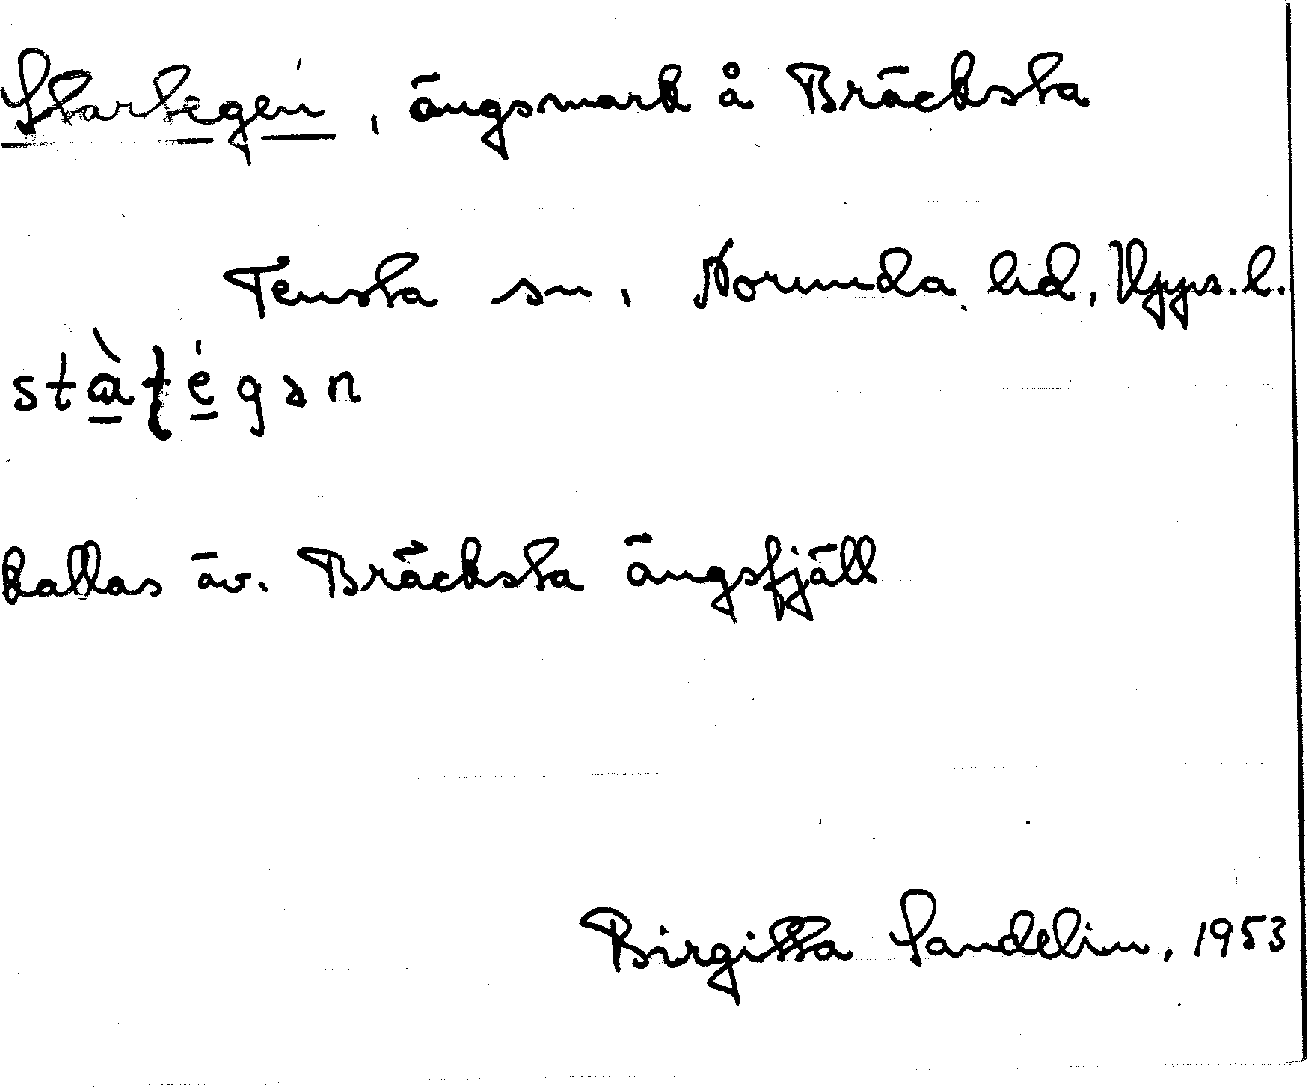 Startegen, ängsmark å Bräcksta
Tensta sn, Norunda hd, Upps. l.
stàṭégən
kallas äv. Bräcksta ängsfjäll
Birgitta Sandelin, 1953